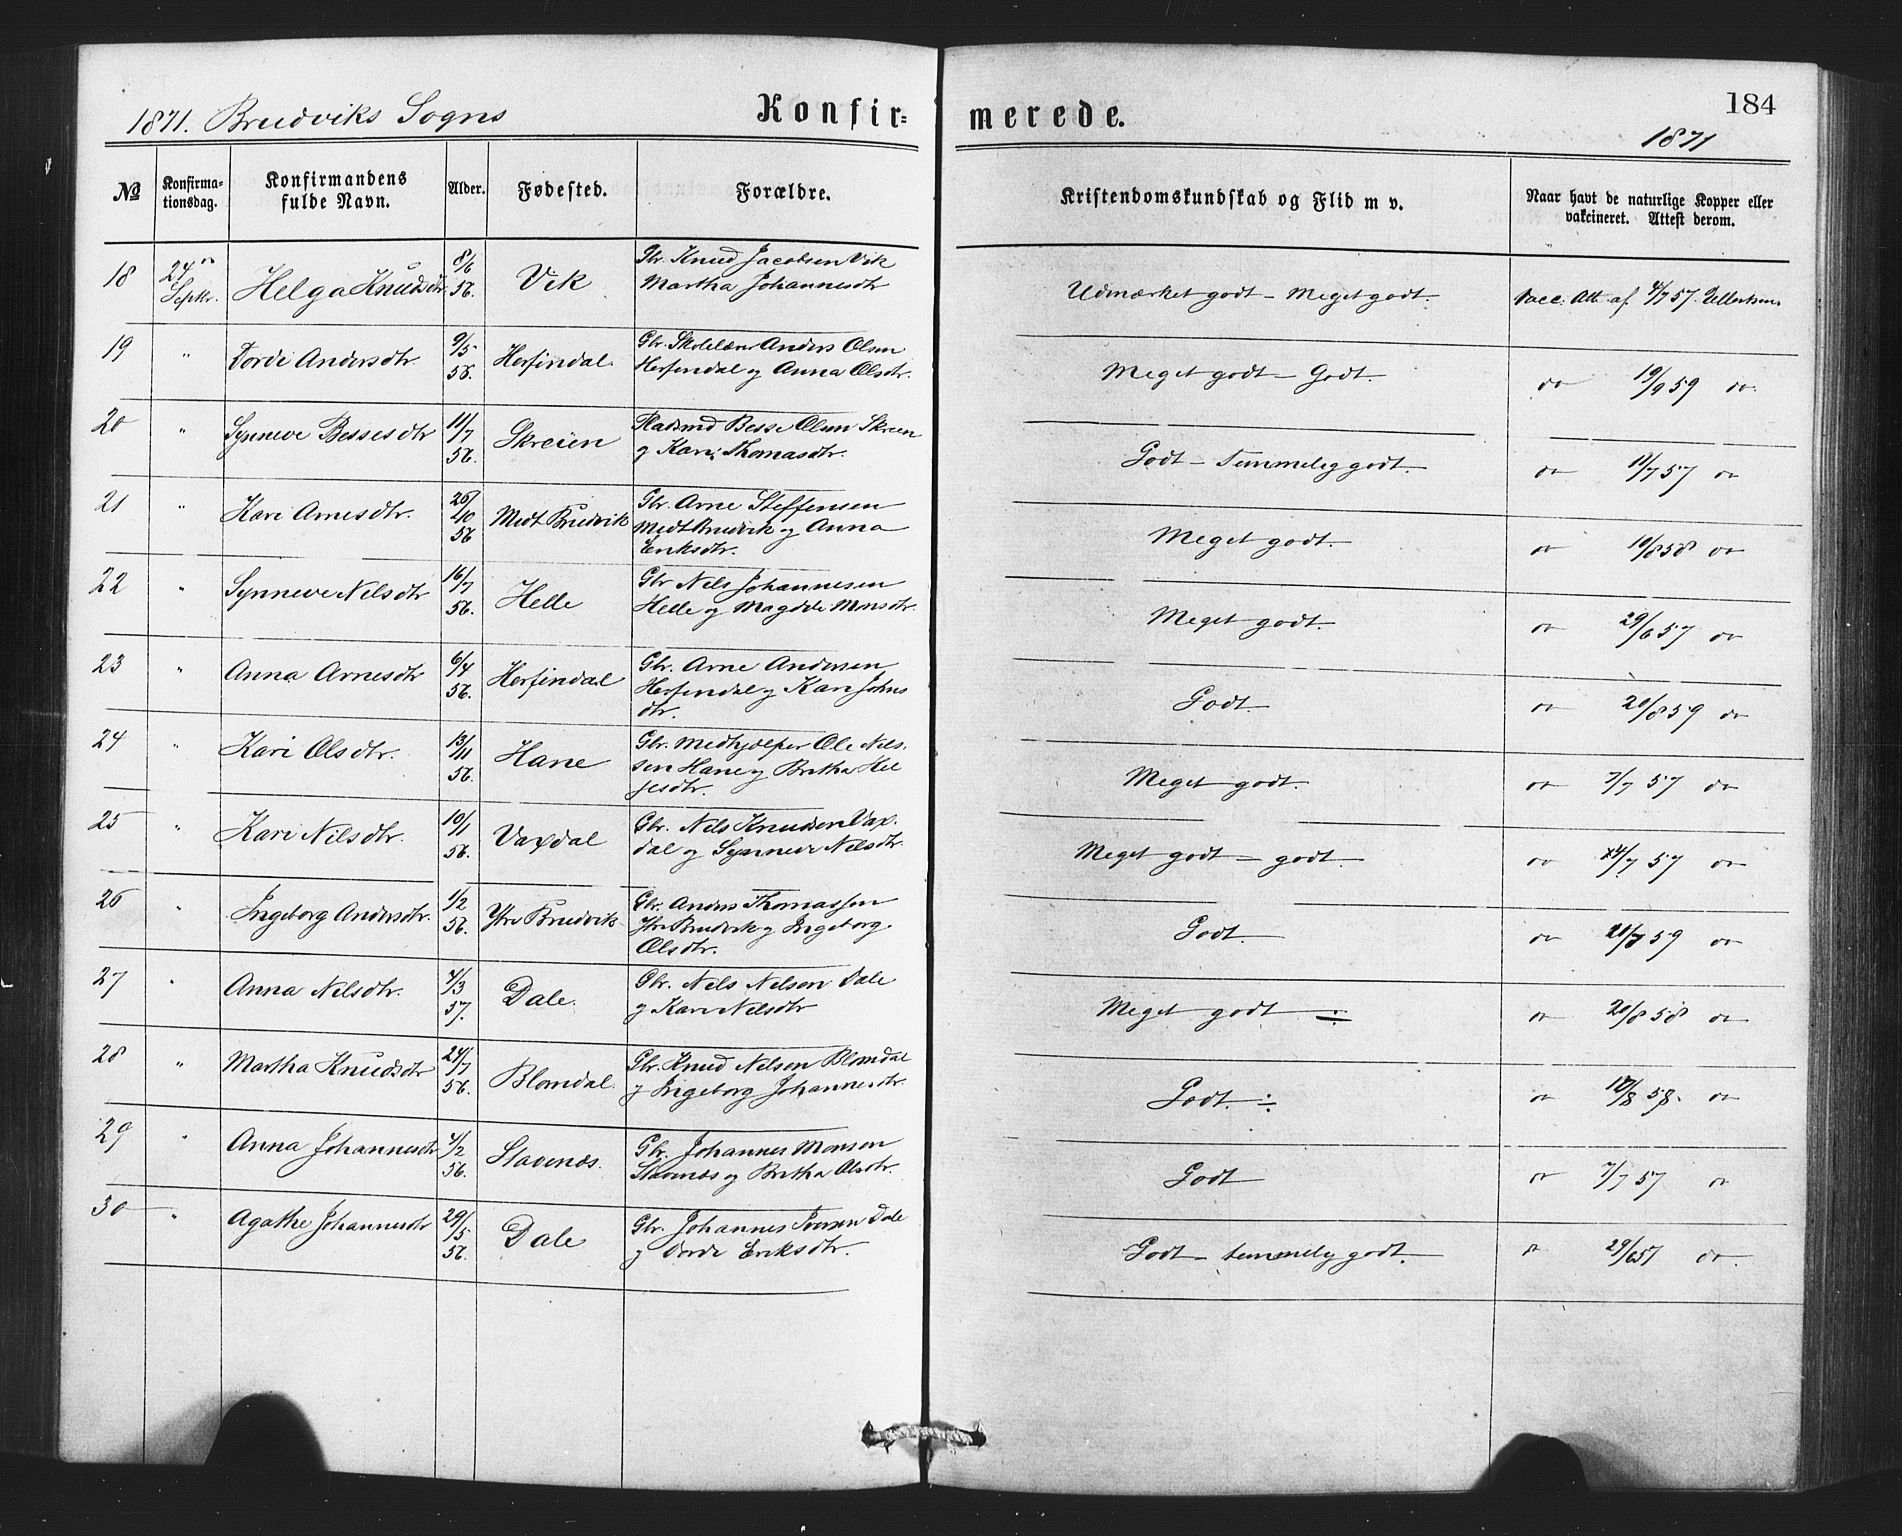 1871. Bruviks Sogns
Konfir=
merede.
184
1871
No
Konfirma-
tionsdag.
Konfirmandens
fulde Navn.
Alder.
Fødested.
Forældre.
Kristendomskundskab og Flid m v.
Naar havt de naturlige Kopper eller
vakcineret. Attest derom.
18 24 Septbr. Helga Knudsdtr 8/6 56. Vik
Gbr. Knud Jacobsen Vik
Martha Johannesdtr
Udmærket godt - Meget godt. Vacc. Att. af 4/7 57.
19 " Dorde Andersdtr. 9/5 56. Herfindal.
Gbr. Skolelær Anders Olsen
Herfindal og Anna Olsdtr.
Meget godt - Godt. do 19/9 59 do.
20 " Synneve Bessesdtr 11/7 56. Skreien
Pladsmd Besse Olsen Skreien
og Kari Thomasdtr.
Godt - Temmelig godt. do 11/7 57 do
21 " Kari Arnesdtr. 26/10 56 Medt Bruvik
Gbr. Arne Steffensen
Medt Bruvik og Anna
Eriksdtr.
Meget godt. do 10/8 58 do
22 " Synneve Nilsdtr 16/7 56. Helle
Gbr Nils Johannesen
Helle og Magdele Monsdtr.
Meget godt. do 29/6 57 do
23 " Anna Arnesdtr 6/4 56. Herfindal
Gbr. Arne Andersen
Herfindal og Kari Johns
dtr.
Godt. do 20/8 59 do
24 " Kari Olsdtr. 13/11 56. Hane
Gbr. Medhjælper Ole Nils-
sen Hane og Britha Hel
gesdtr.
Meget godt. do 7/7 57 do
25 " Kari Nilsdtr. 10/1 56. Vaxdal
Gbr. Nils Knudsen Vax-
dal og Synneve Nilsdtr.
Meget godt - godt. do 24/7 57 do
26 " Ingeborg Andersdtr. 1/2 56. Ytre Bruvik
Gbr. Anders Thomassen
Ytre Bruvik og Ingeborg
Olsdtr.
Godt. do 59 do
27 " Anna Nilsdtr. 4/3 57. Dale.
Gbr. Nels Nelsen Dale
og Kari Nilsdtr
Meget godt ÷ do 20/8 58 do
28 " Martha Knudsdtr 24/7 56. Blomdal.
Gbr. Knud Nelsen Blomdal
og Ingeborg Johannesdtr.
Godt. ÷ do 18/8 58. do
29 " Anna Johannesdtr 4/2 56. Stavenæs.
Gbr. Johannes Monsen
Stavenæs og Britha Olsdtr.
Godt do 7/7 57 do
30 " Agathe Johannesdtr 29/5 56. Dale
Gbr. Johannes Ivarsen Dale
og Dorde Eriksdtr.
Godt - temmelig godt. do 29/6 57 do.